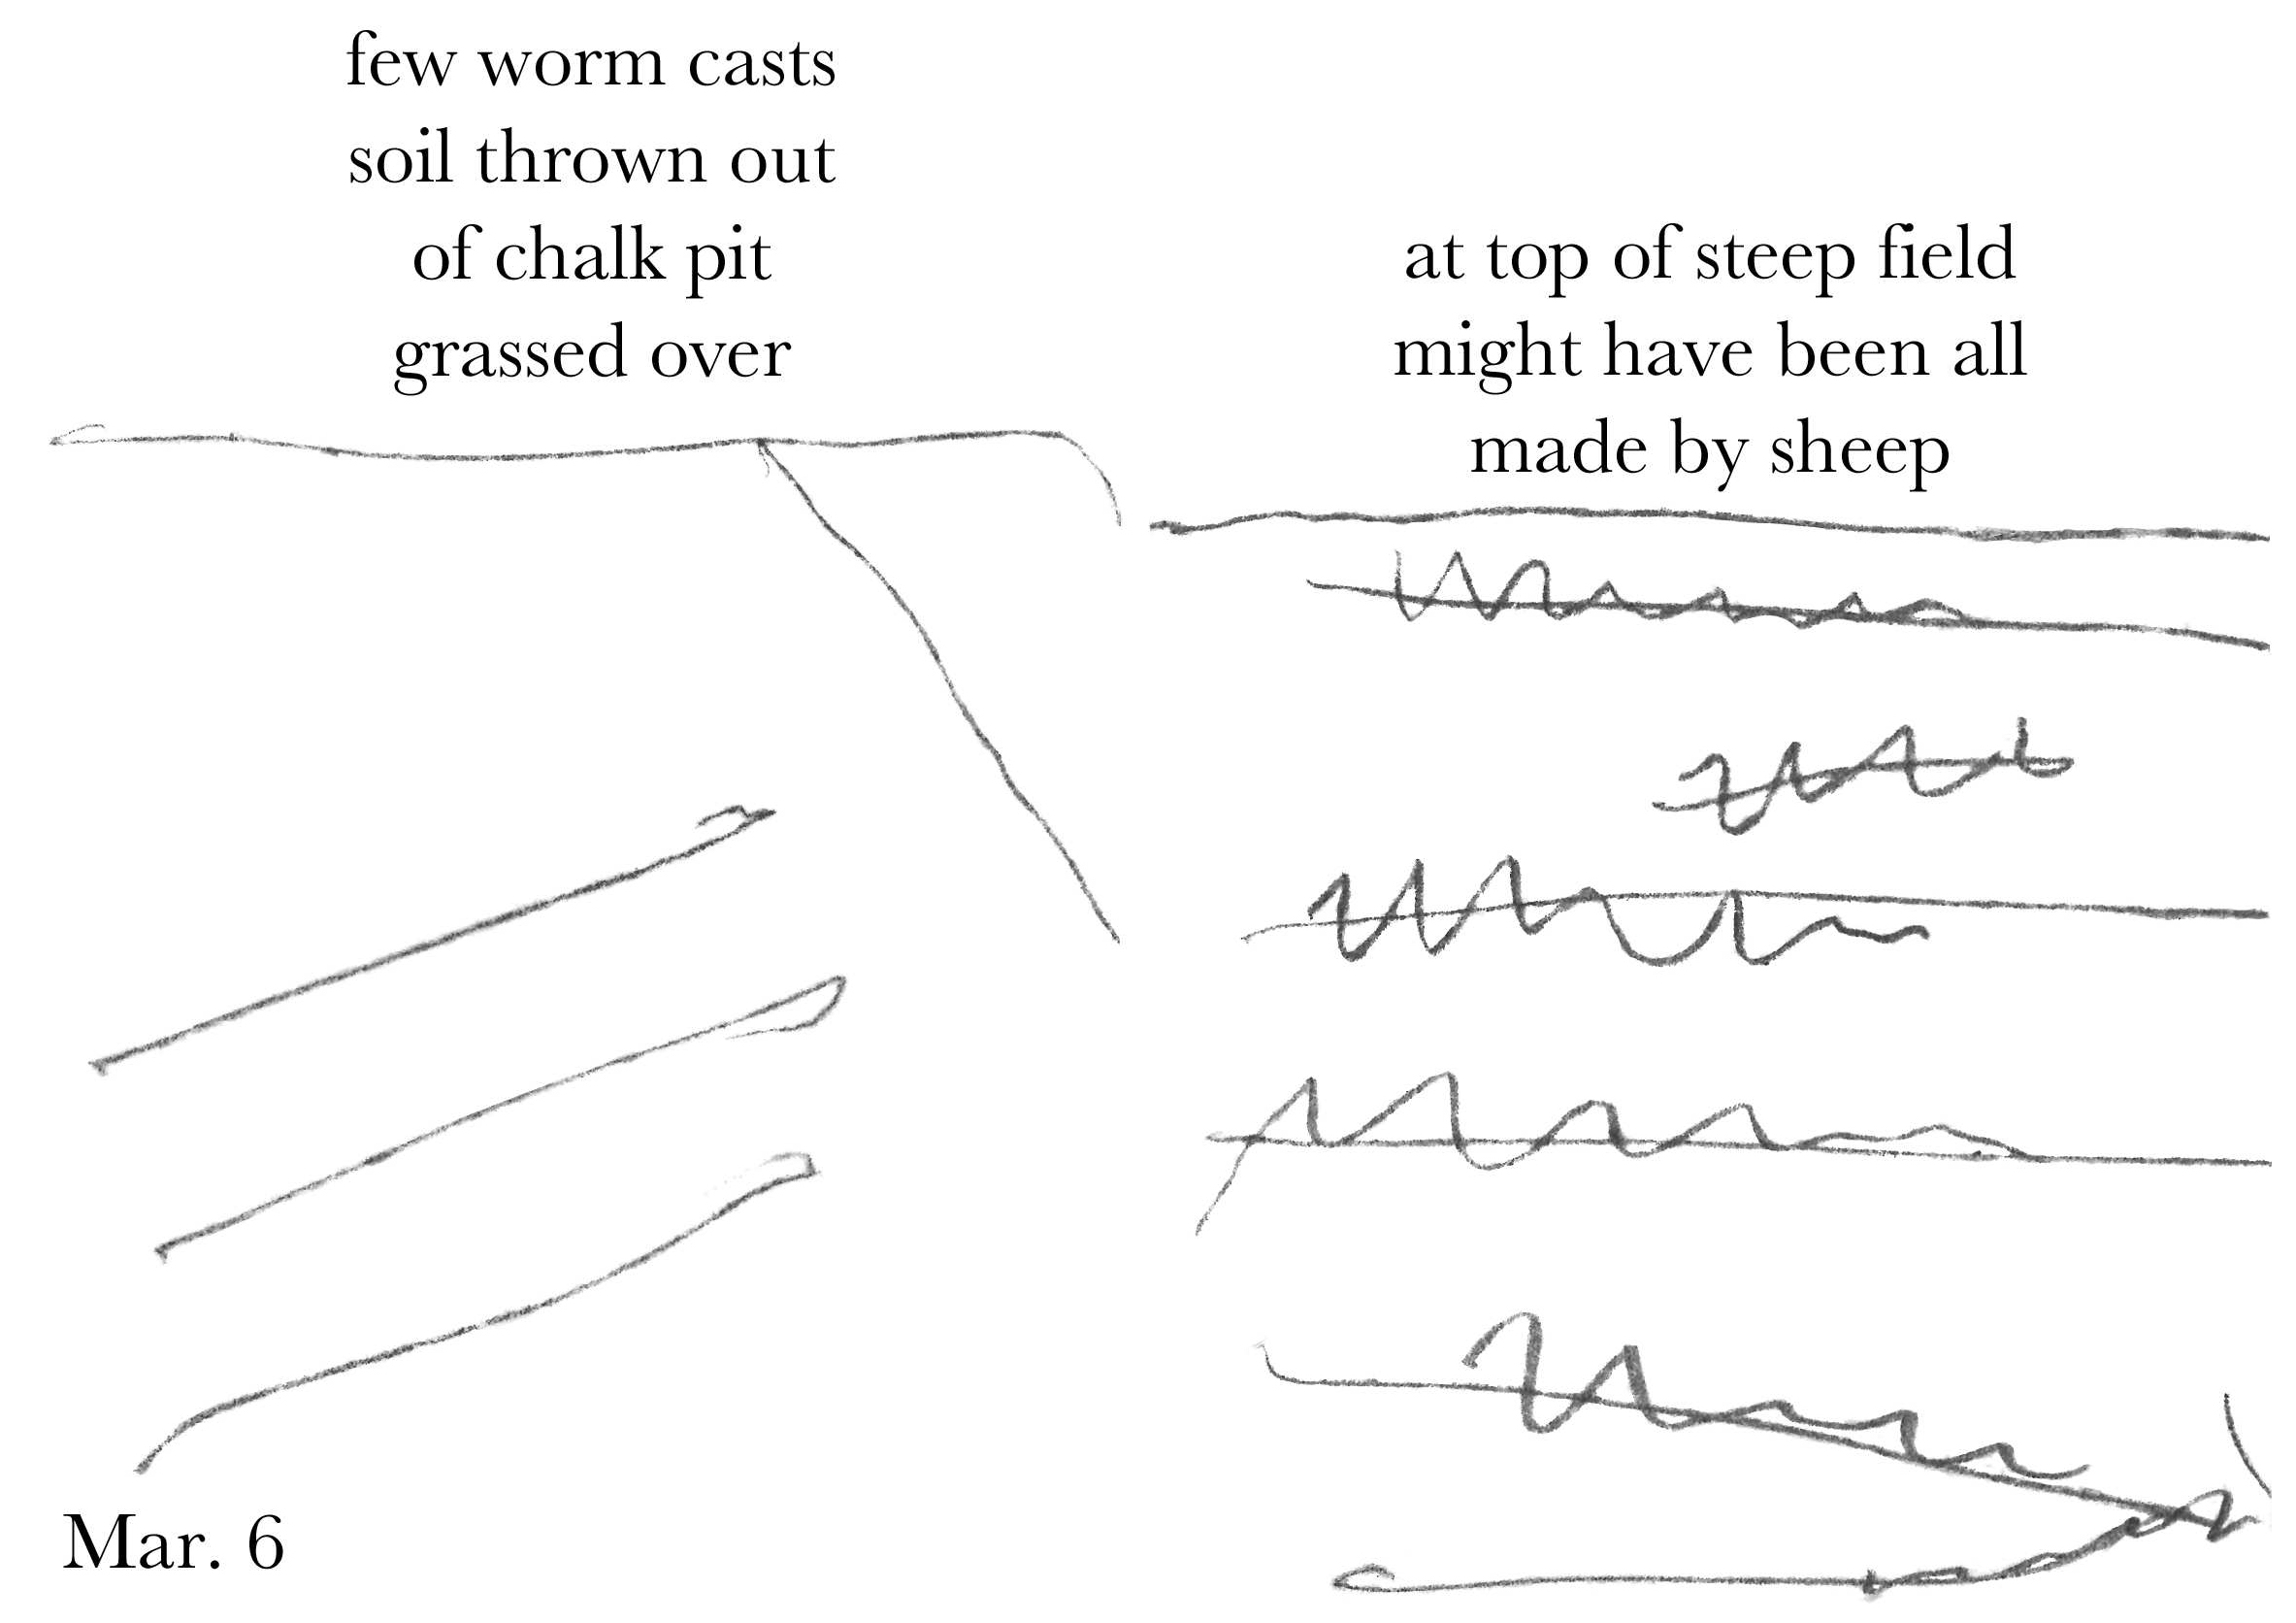 few worm casts
soil thrown out
of chalk pit
grassed over
at top of steep field
might have been all
made by sheep
Mar. 6